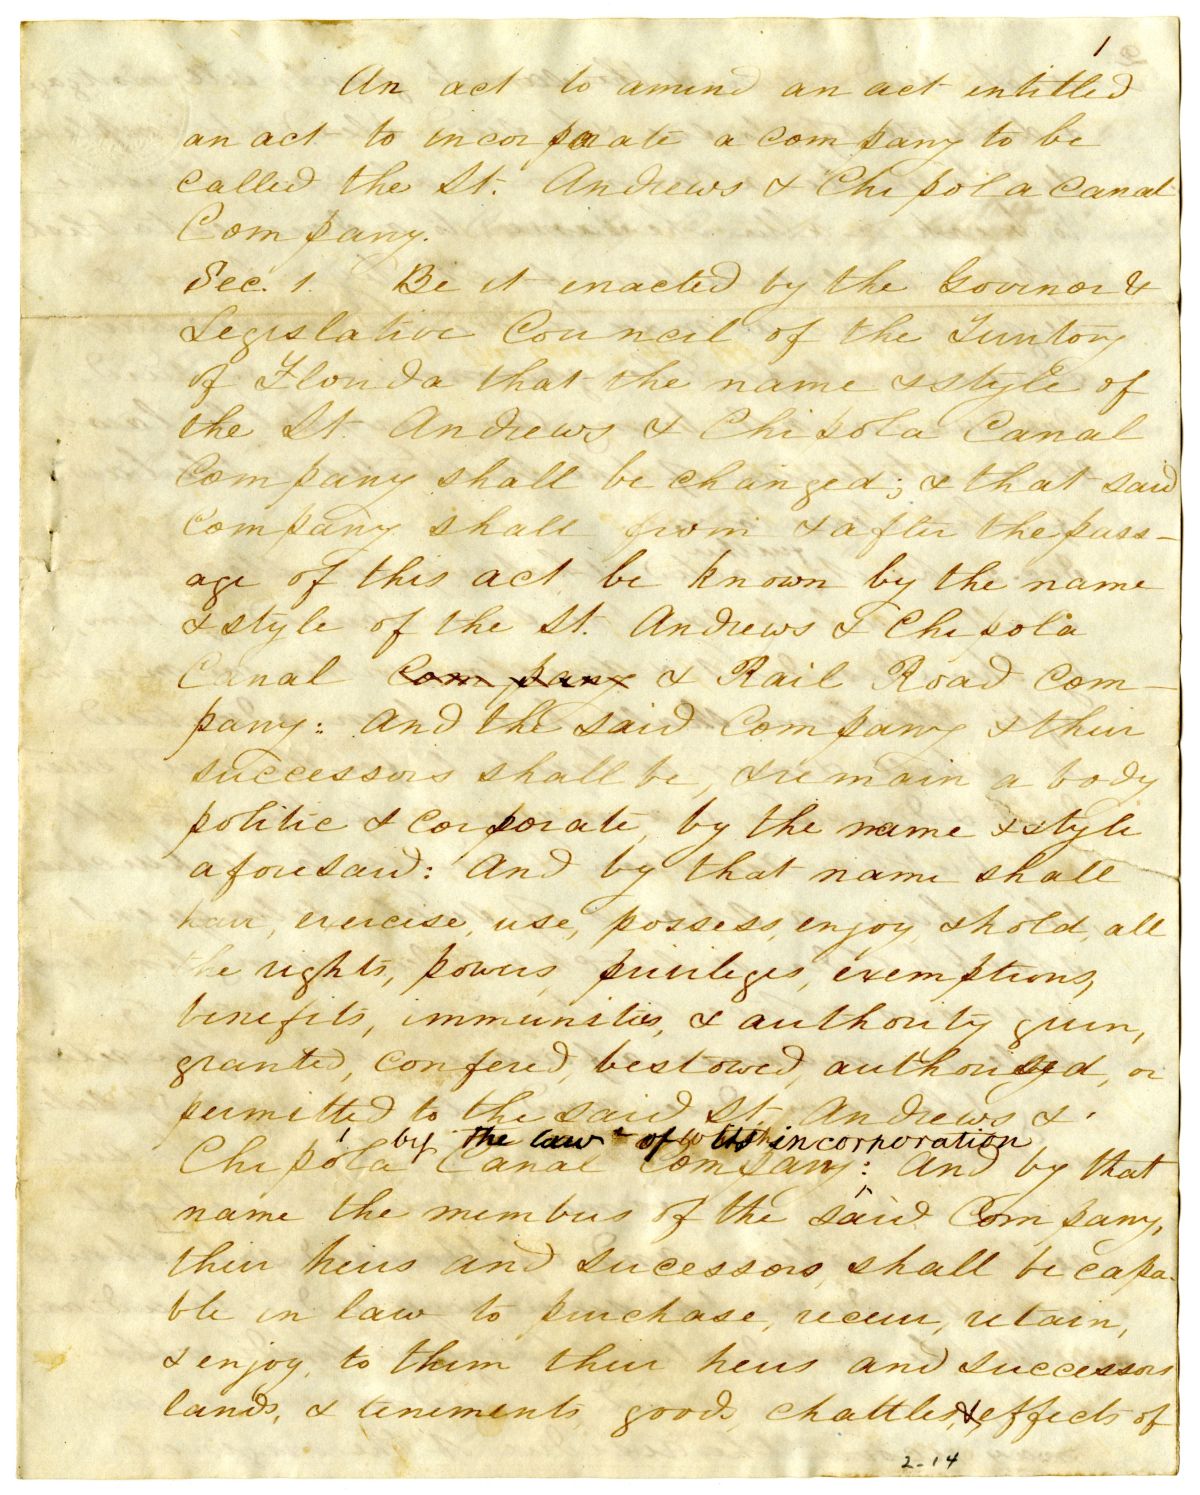 1
An act to amend an act entitled
an act to incorporate a company to be
called the St. Andrews & Chipola Canal
Company.
Sec. 1. Be it enacted by the Governor &
Legislative Council of the Territory
of Florida that the name & style of
the St. Andrews & Chipola Canal
Company shall be changed; & that said
Company shall from & after the pass-
age of this act be known by the name
& style of the St. Andrews & Chipola
Canal Company & Rail Road Com-
pany: And the said Company & their
successors shall be, & remain a body
politic & corporate, by the name & style
aforesaid: And by that name shall
have, exercise, use, possess, enjoy, & hold, all
the rights, powers, privileges, exemptions,
benefits, immunities, & authority given,
granted, confered, bestowed, authorised, or
permitted to the said St. Andrews &
by the laws of its incorporation
Chipola Canal Company: And by that
name the members of the said Company,
their heirs and sucessors, shall be capa-
ble in law to purchase, receive, retain,
& enjoy, to them their heirs and successors
lands, & tenements, goods, chattles, & effects of
2-14